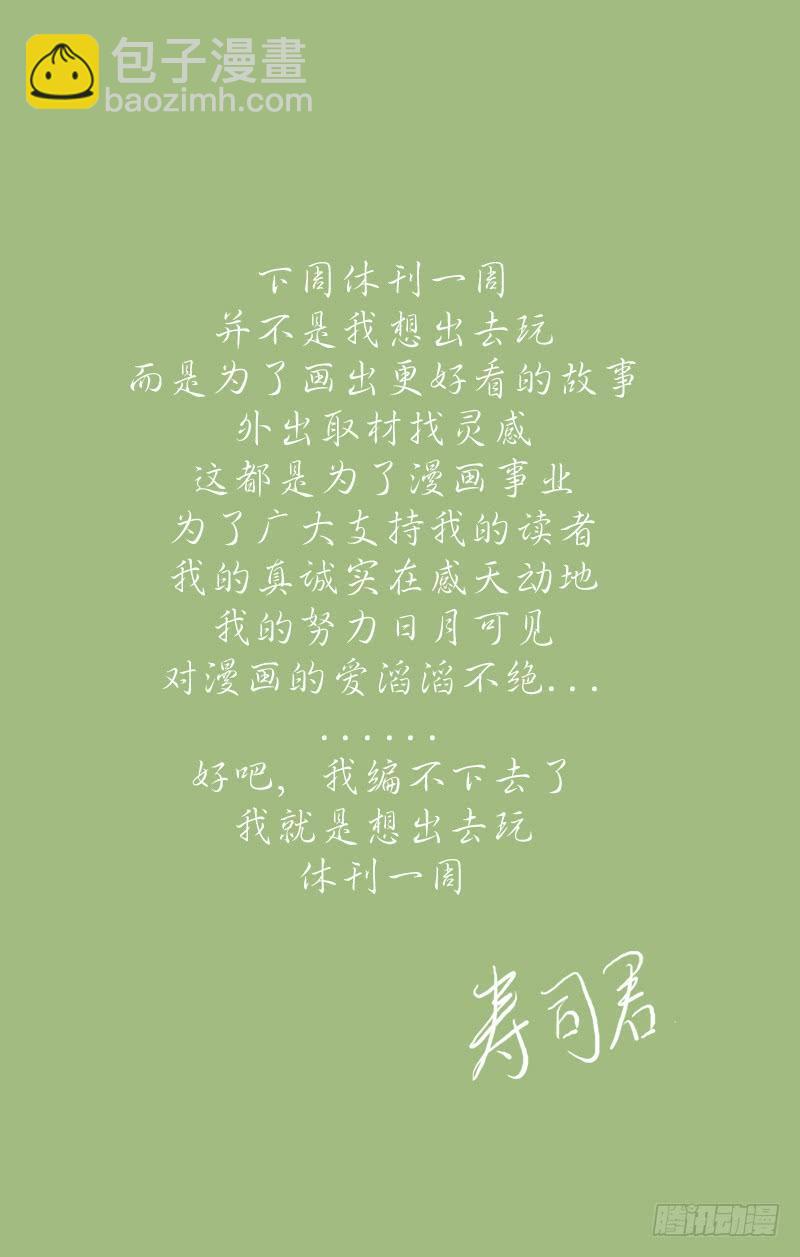 包子漫畫
baozimh.com
下周休刊一周
并不是我想出去玩
而是为了画出更好看的故事
外出取材找灵感
这都是为了漫画事业
为了广大支持我的读者
我的真诚实在感天动地
我的努力日月可见
对漫画的爱滔滔不绝...
......
好吧，我编不下去了
我就是想出去玩
休刊一周
寿司君
腾讯动漫